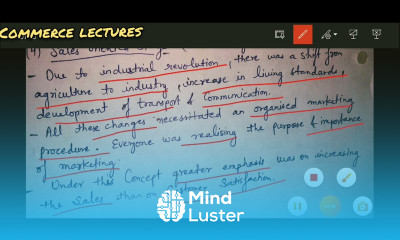 COMMERCE LECTURES
4) Sales oriented
- Due to industrial revolution, there was a shift from
agriculture to industry, increase in living standards,
development of transport & communication.
- All these changes necessitated an organised marketing
procedure. Everyone was realising the purpose & importance
of marketing.
- Under this concept greater emphasis was on increasing
the sales than on satisfaction.
Mind
Luster